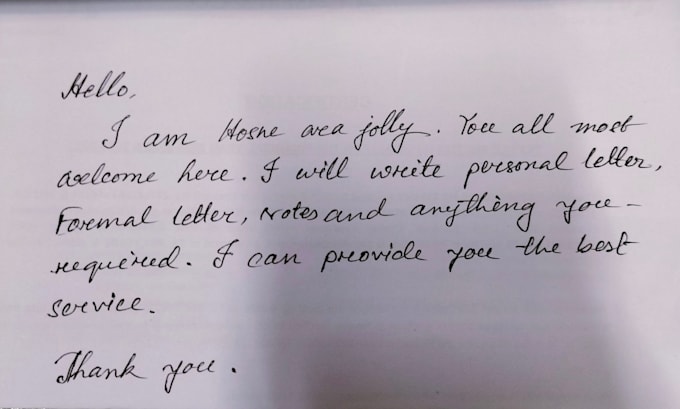 Hello,
I am Hosne ara jolly. You all most
welcome here. I will write personal letter,
Formal letter, Notes and anything you-
required. I can provide you the best
service.
Thank you.